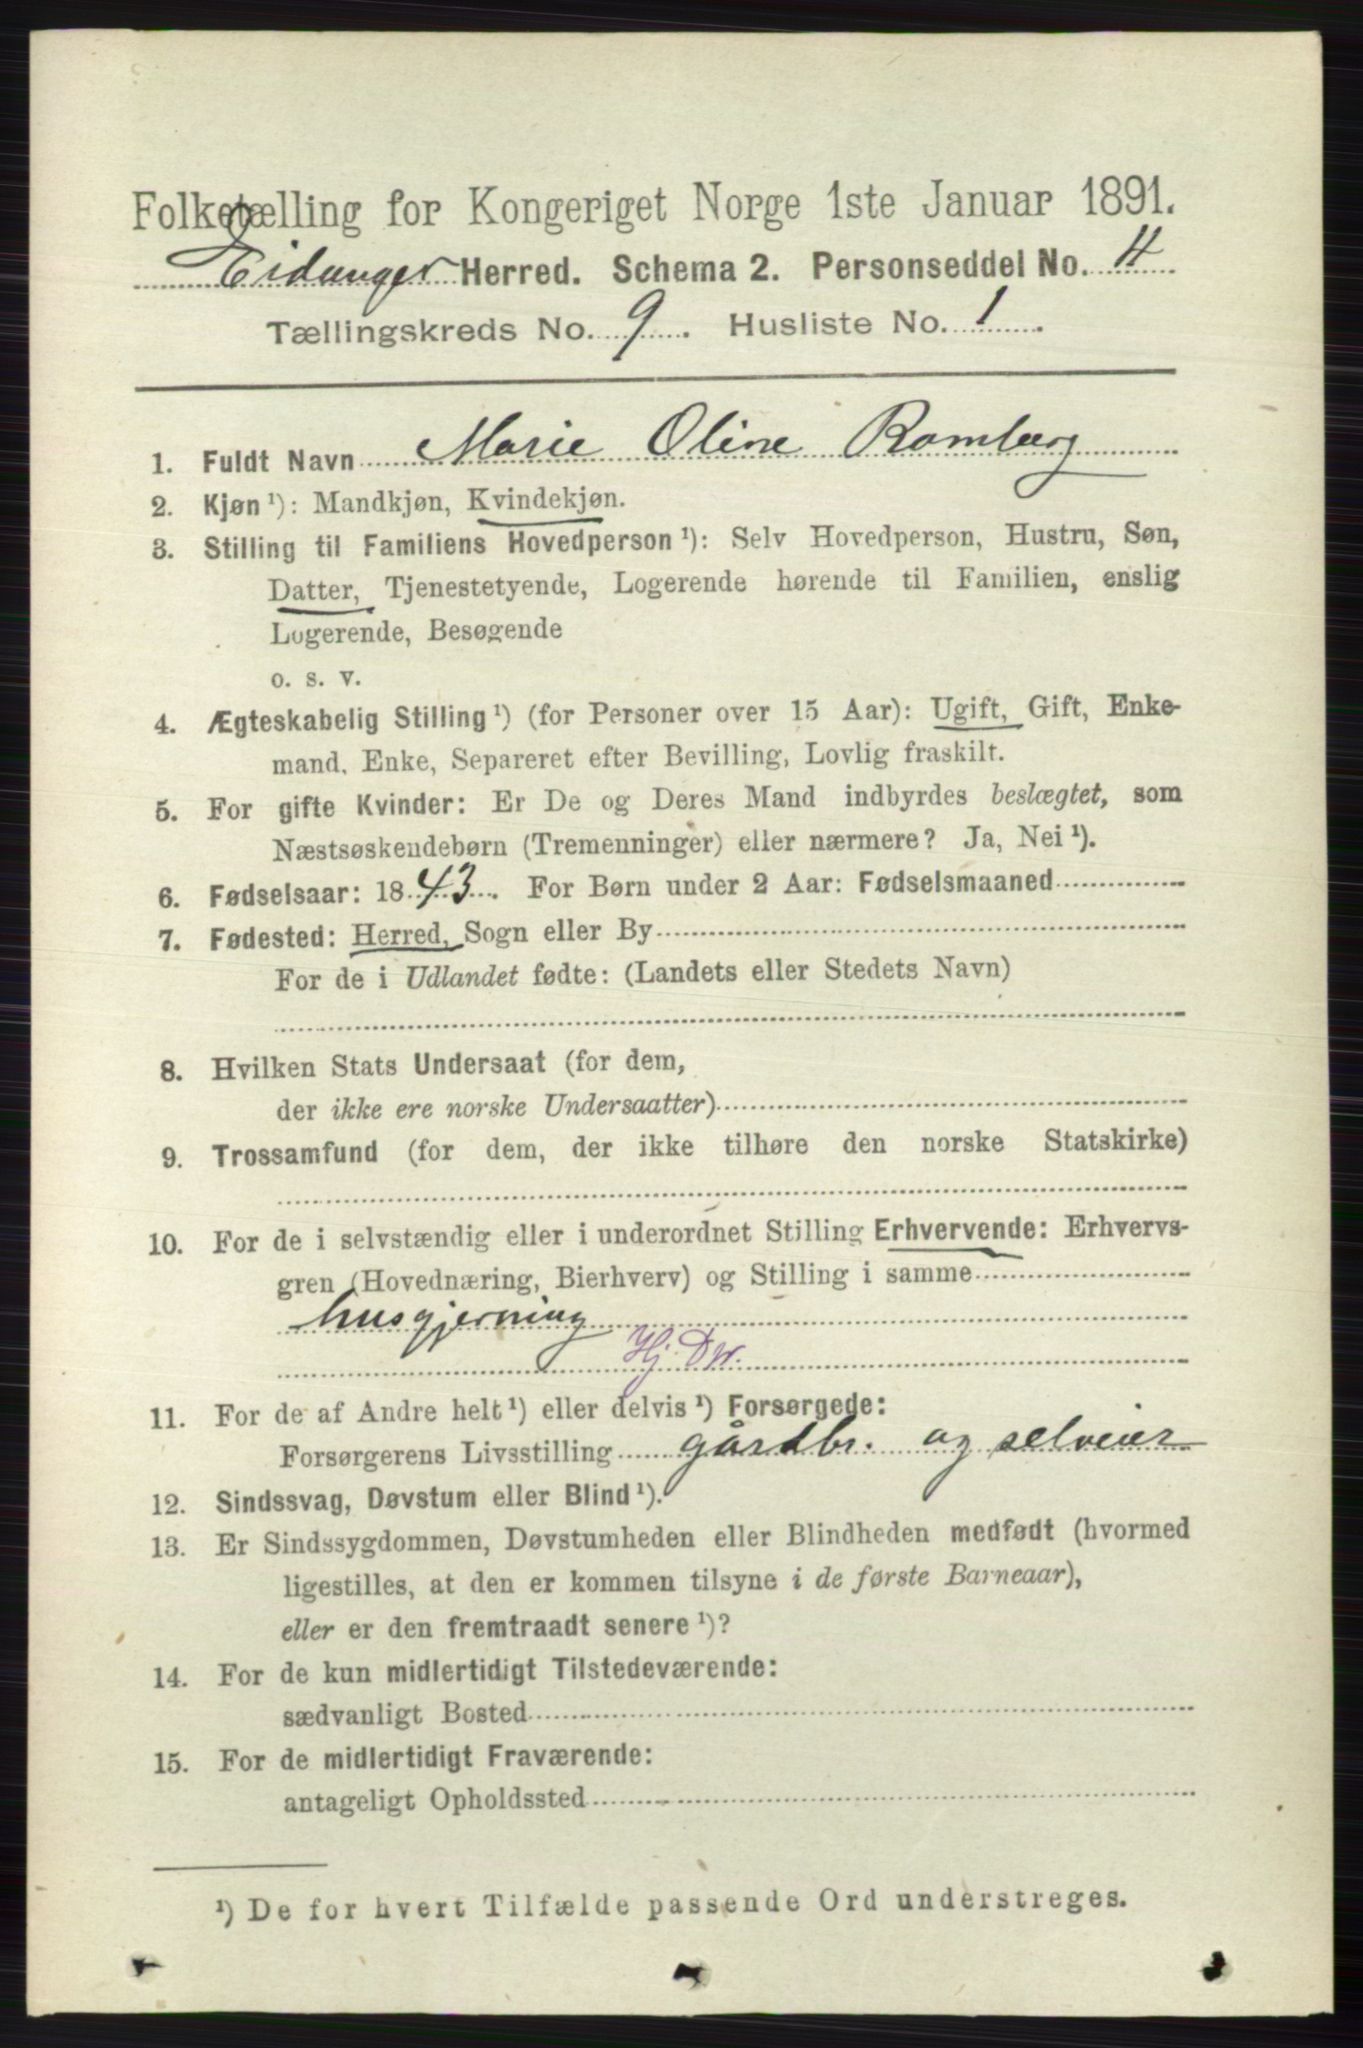 Folketælling for Kongeriget Norge 1ste Januar 1891.
Eidanger Herred. Schema 2. Personseddel No. 4
Tællingskreds No. 9. Husliste No. 1.
1. Fuldt Navn Marie Oline Romberg
2. Kjøn ¹): Mandkjøn, Kvindekjøn.
3. Stilling til Familiens Hovedperson ¹): Selv Hovedperson, Hustru, Søn,
Datter, Tjenestetyende, Logerende hørende til Familien, enslig
Logerende, Besøgende
o. s. v.
4. Ægteskabelig Stilling ¹) (for Personer over 15 Aar): Ugift, Gift, Enke-
mand, Enke, Separeret efter Bevilling, Lovlig fraskilt.
5. For gifte Kvinder: Er De og Deres Mand indbyrdes beslægtet, som
Næstsøskendebørn (Tremenninger) eller nærmere? Ja, Nei ¹).
6. Fødselsaar: 1843. For Børn under 2 Aar: Fødselsmaaned
7. Fødested: Herred, Sogn eller By
For de i Udlandet fødte: (Landets eller Stedets Navn)
8. Hvilken Stats Undersaat (for dem,
der ikke ere norske Undersaatter)
9. Trossamfund (for dem, der ikke tilhøre den norske Statskirke)
10. For de i selvstændig eller i underordnet Stilling Erhvervende: Erhvervs-
gren (Hovednæring, Bierhverv) og Stilling i samme
husgjerning
Hj. Dtr.
11. For de af Andre helt ¹) eller delvis ¹) Forsørgede:
Forsørgerens Livsstilling gårdbr. og selveier
12. Sindssvag, Døvstum eller Blind ¹).
13. Er Sindssygdommen, Døvstumheden eller Blindheden medfødt (hvormed
ligestilles, at den er kommen tilsyne i de første Barneaar),
eller er den fremtraadt senere ¹)?
14. For de kun midlertidigt Tilstedeværende:
sædvanligt Bosted
15. For de midlertidigt Fraværende:
antageligt Opholdssted
¹) De for hvert Tilfælde passende Ord understreges.